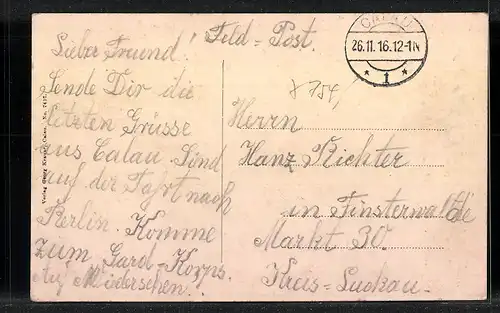 Feld=Post.
Lieber Freund!
Sende Dir die
letzten Grüsse
aus Calau. Sind
auf der Fahrt nach
Berlin. Komme
zum Gard-Korps.
Auf Wiedersehen!
CALAU
26.11.16.12-1N
* 1 *
Herrn
Hanz Richter
in Finsterwalde
Markt 30.
Kreis=Luckau.